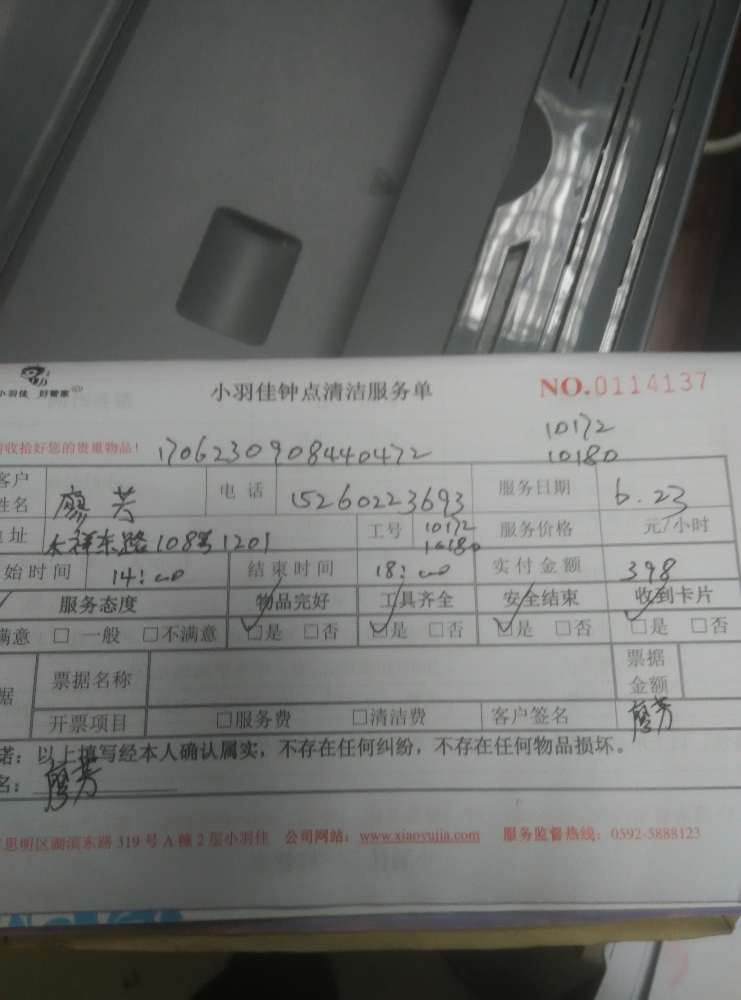 小羽佳 好管家
小羽佳钟点清洁服务单 NO.0114137
收拾好您的贵重物品! 1706230908440472 10172
10180
客户姓名 廖芳 电话 15260223693 服务日期 6.23
址 祥东路108号1201 工号 10172 10180 服务价格 元/小时
始时间 14:00 结束时间 18:00 实付金额 398
服务态度 物品完好 工具齐全 安全结束 收到卡片
满意 □一般 □不满意 □是 □否 □是 □否 □是 □否 □是 □否
据 票据名称 票据金额
开票项目 □服务费 □清洁费 客户签名 廖芳
诺:以上填写经本人确认属实,不存在任何纠纷,不存在任何物品损坏。
名: 廖芳
思明区湖滨东路319号A幢2层小羽佳 公司网站:www.xiaoyujia.com 服务监督热线:0592-5888123